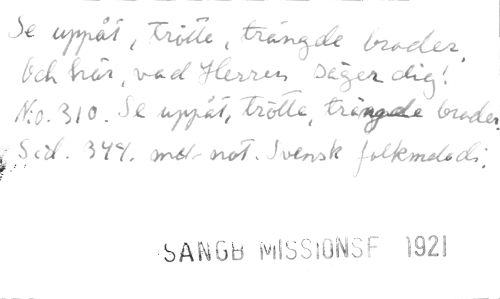 Se uppåt, trötte, trängde broder,
Och hör, vad Herren säger dig!
N:o. 310. Se uppåt, trötte, trängde broder.
Sid. 344. med not. Svensk folkmelodi.
SANGB MISSIONSF 1921